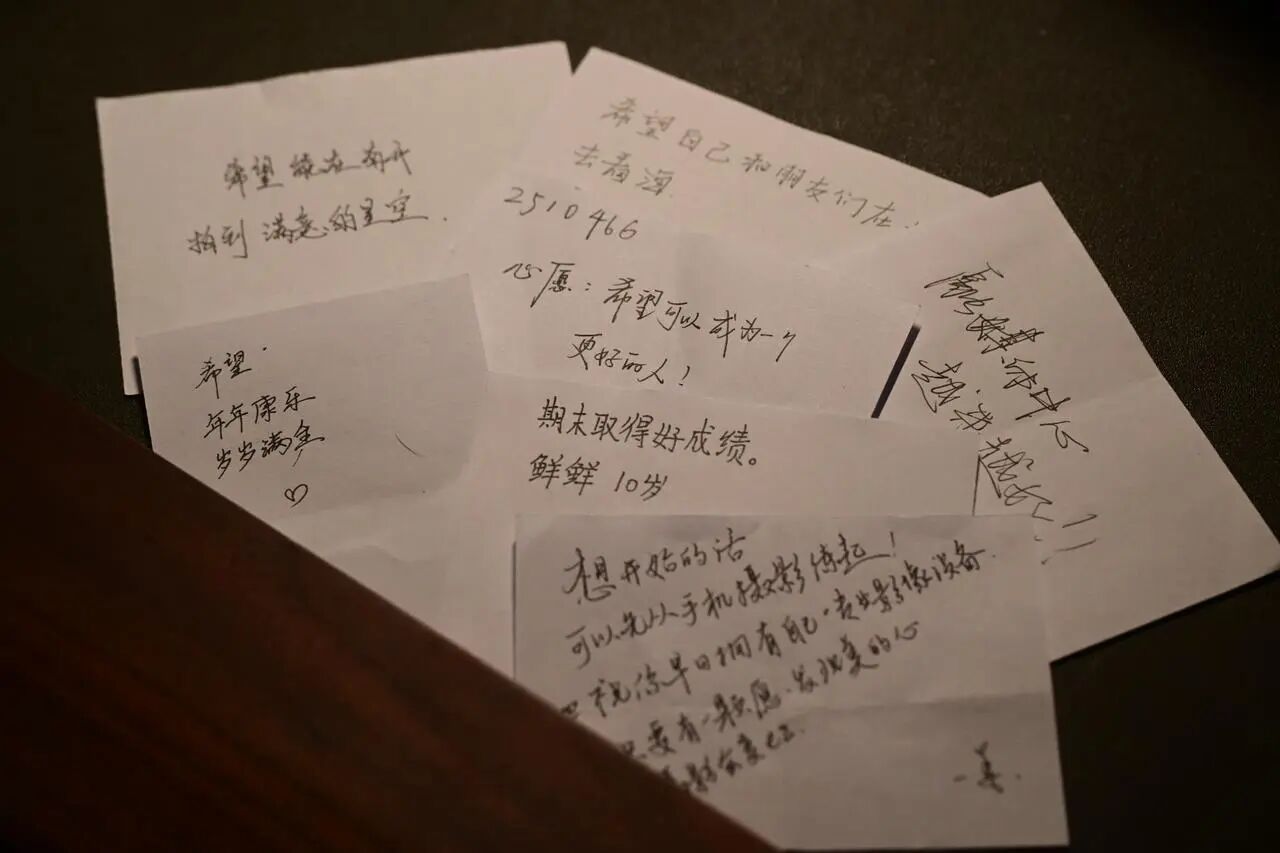 希望能在南开
拍到满意的星空.
希望自己和朋友们在
去看海.
2510466
心愿：希望可以成为一个
更好的人！
希望.
年年康乐
岁岁满全
♡
期末取得好成绩。
鲜鲜 10岁
越来越好！！
想开始的话
可以先从手机摄影传起！
祝你早日拥有自己专业影像设备.
要有一颗愿发现美的心